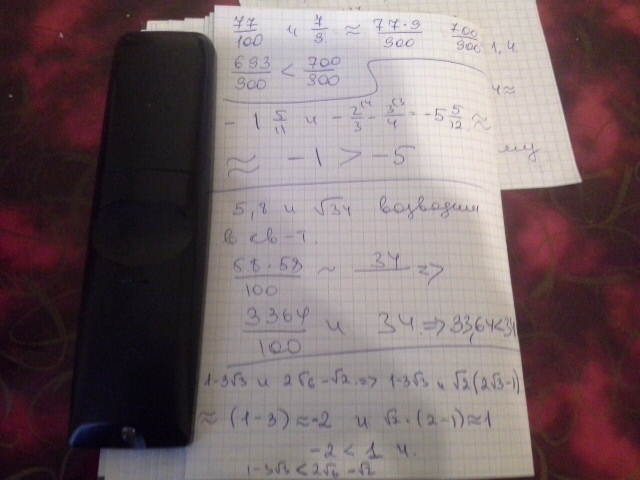 77/100 и 7/9 ≈ 77·9/900 700/900
693/900 < 700/900
- 1 5/11 и - 2/3 - 3/4 = -5 5/12 ≈
≈ -1 > -5
5,8 и √34 возводим
в кв-т.
58·58/100 ~ 34 =>
3364/100 и 34 => 33,64<34
1-3√3 и 2√6-√2 => 1-3√3 и √2(2√3-1)
≈ (1-3) ≈ -2 и √2·(2-1) ≈ 1
-2 < 1 и.
1-3√3 < 2√6-√2